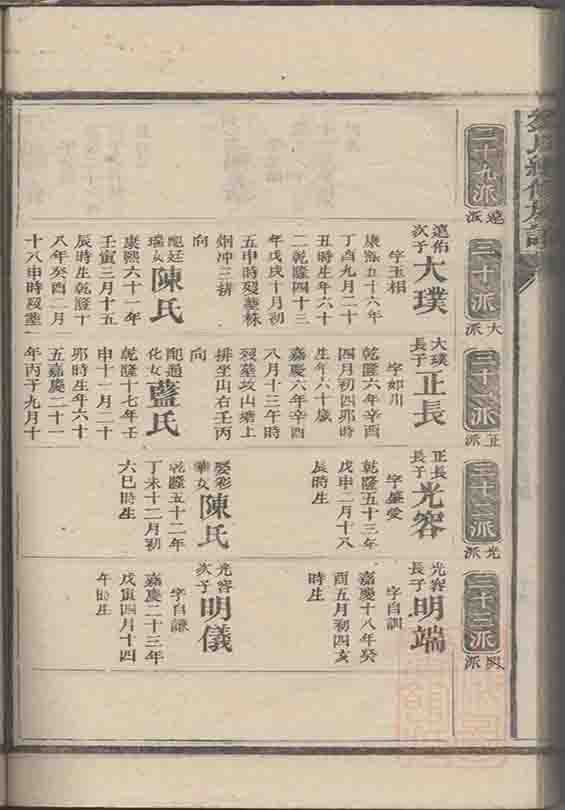 二十九派
遶派
三十派
大派
三十一派
正派
三十二派
光派
三十三派
派
遶佑次子
大璞
字玉相
康熙五十六年
丁酉九月二十
丑時生年六十
二乾隆四十三
年戊戌十月初
五申時歿葬株
炯冲三排
向
配廷瑞女
陳氏
康熙六十一年
壬寅三月十五
辰時生乾隆十
八年癸酉二月
十八申時歿葬
大璞長子
正長
字如川
乾隆六年辛酉
四月初四邜時
生年六十歲
嘉慶六年辛酉
八月十三午時
歿葬坟山塘上
排坐山右壬丙
向
配道化女
藍氏
乾隆十七年壬
申十一月二十
邜時生年六十
五嘉慶二十一
年丙子九月十
正長長子
光容
字盛愛
乾隆五十三年
戊申二月十八
辰時生
娶彩華女
陳氏
乾隆五十二年
丁未十二月初
六巳時生
光容長子
明端
字自訓
嘉慶十八年癸
酉五月初四亥
時生
光容次子
明儀
字自謙
嘉慶二十三年
戊寅四月十四
午時生